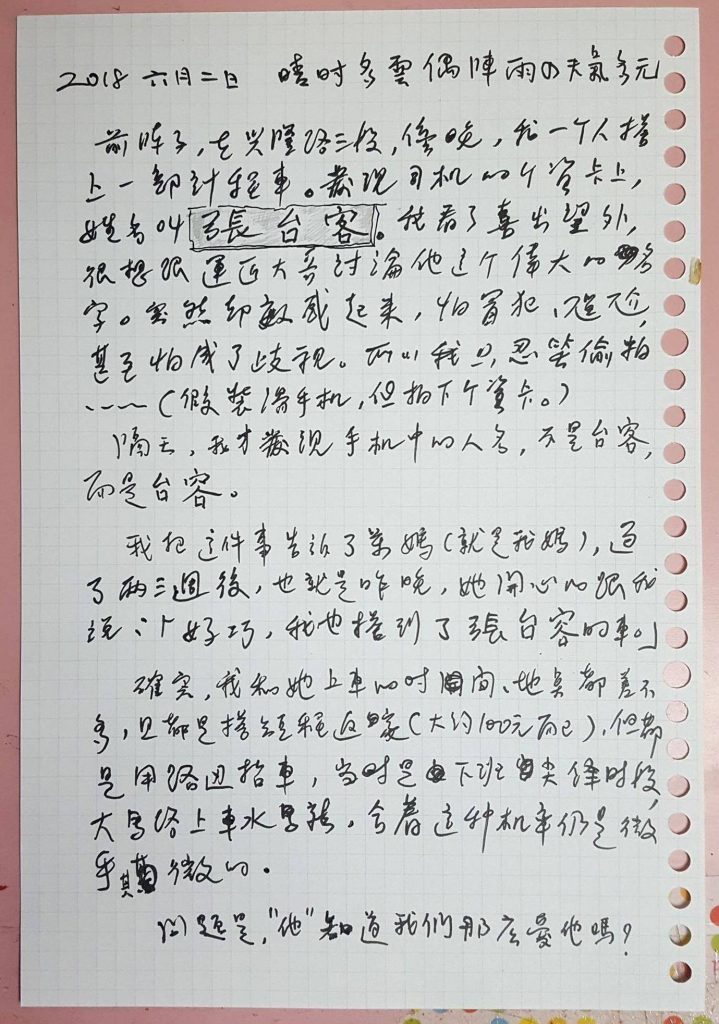 2018 六月二日 晴时多雲偶陣雨の天氣多元
前阵子,在兴隆路三段,傍晚,我一个人搭
上一部計程車。發現司机的个資卡上,
姓名叫張台客。我看了喜出望外,
很想跟運匠大哥討論他这个偉大的名
字。突然却敏感起来,怕冒犯、尷尬,
甚至怕成了歧視。所以我只忍笑偷拍
……(假裝滑手机,但拍下个資卡。)
隔天,我才發現手机中的人名,不是台客,
而是台容。
我把这件事告訴了葉媽(就是我媽),過
了兩三週後,也就是昨晚,她開心的跟我
说:「好巧,我也搭到了張台容的車。」
確实,我和她上車的时間、地点都差不
多,且都是搭短程返家(大約100元而已),但都
是用路边招車,当时是下班尖峰时段,
大馬路上車水馬龍,合着这种机率仍是微
乎其微的。
问题是,"他"知道我們那么愛他嗎?